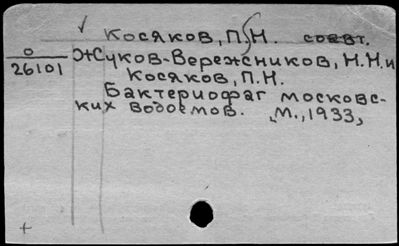 Косяков, П.Н. соавт.
О
26101
Жуков-Вережников, Н.Н. и
Косяков, П.Н.
Бактериофаг московс-
ких водоемов. М., 1933,